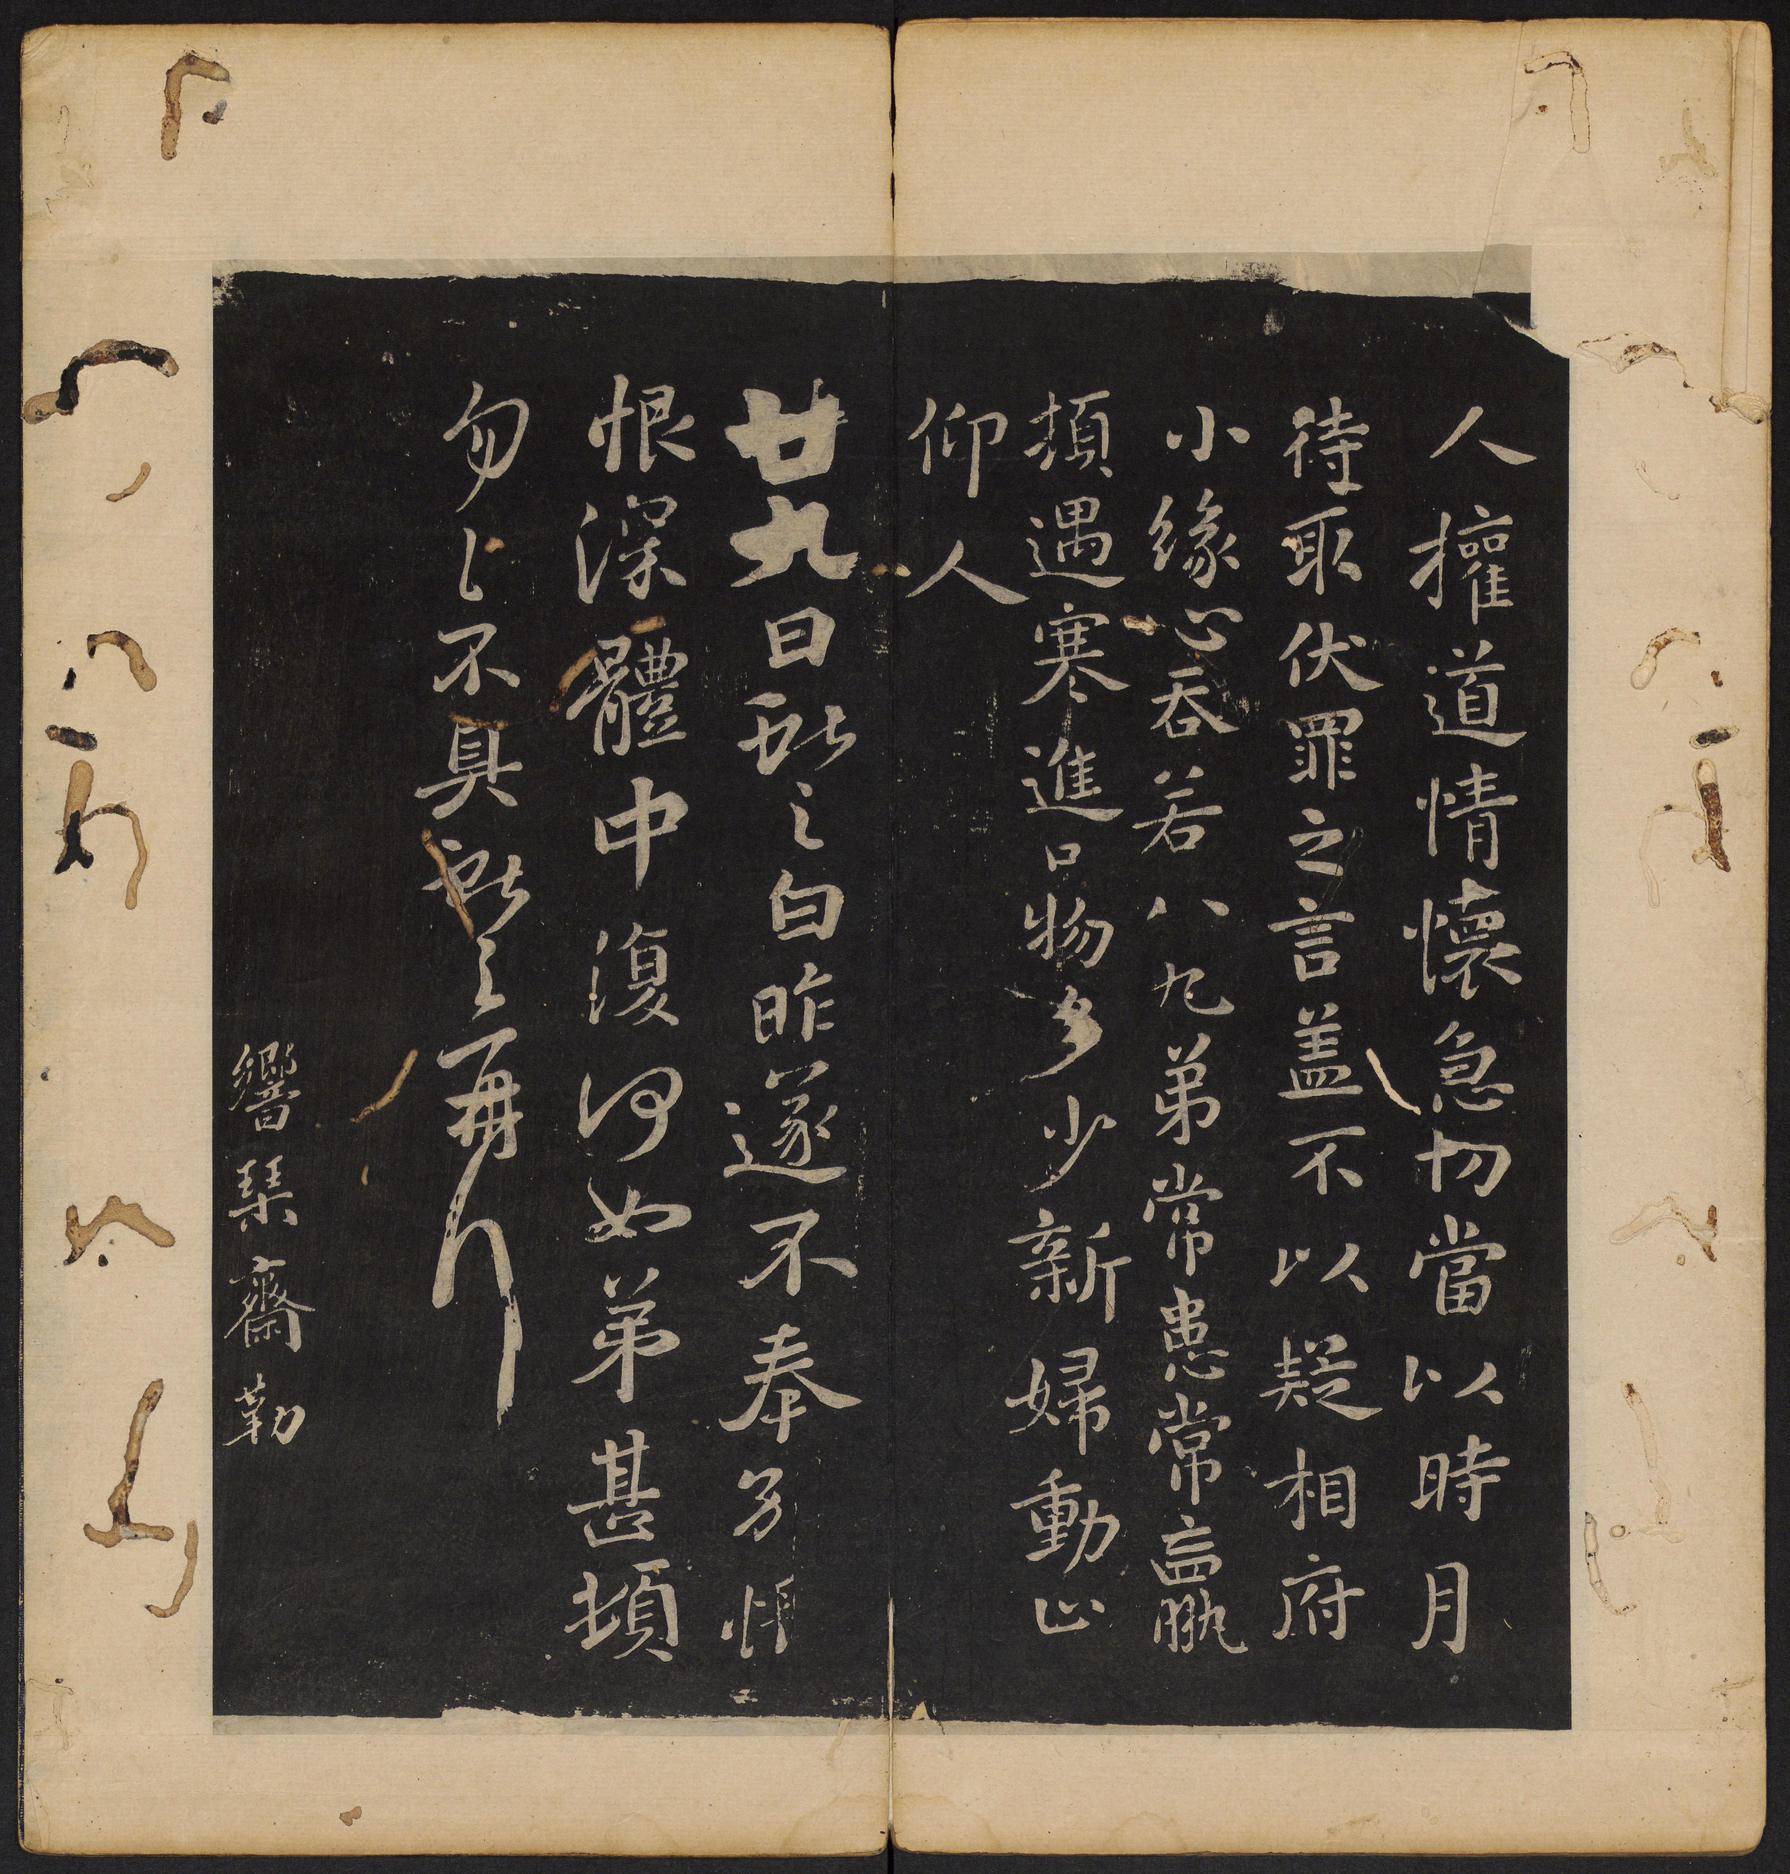 人權道情懷急切當以時月
待取伏罪之言盖不以疑相府
小緣心吞若八九弟常患常嗌
頓遇寒進口物多少新婦動止
仰人
廿九日獻之白昨遂不奉別悵
恨深體中復何如弟甚頓
匆匕不具獻之再拜
響琹齋勒